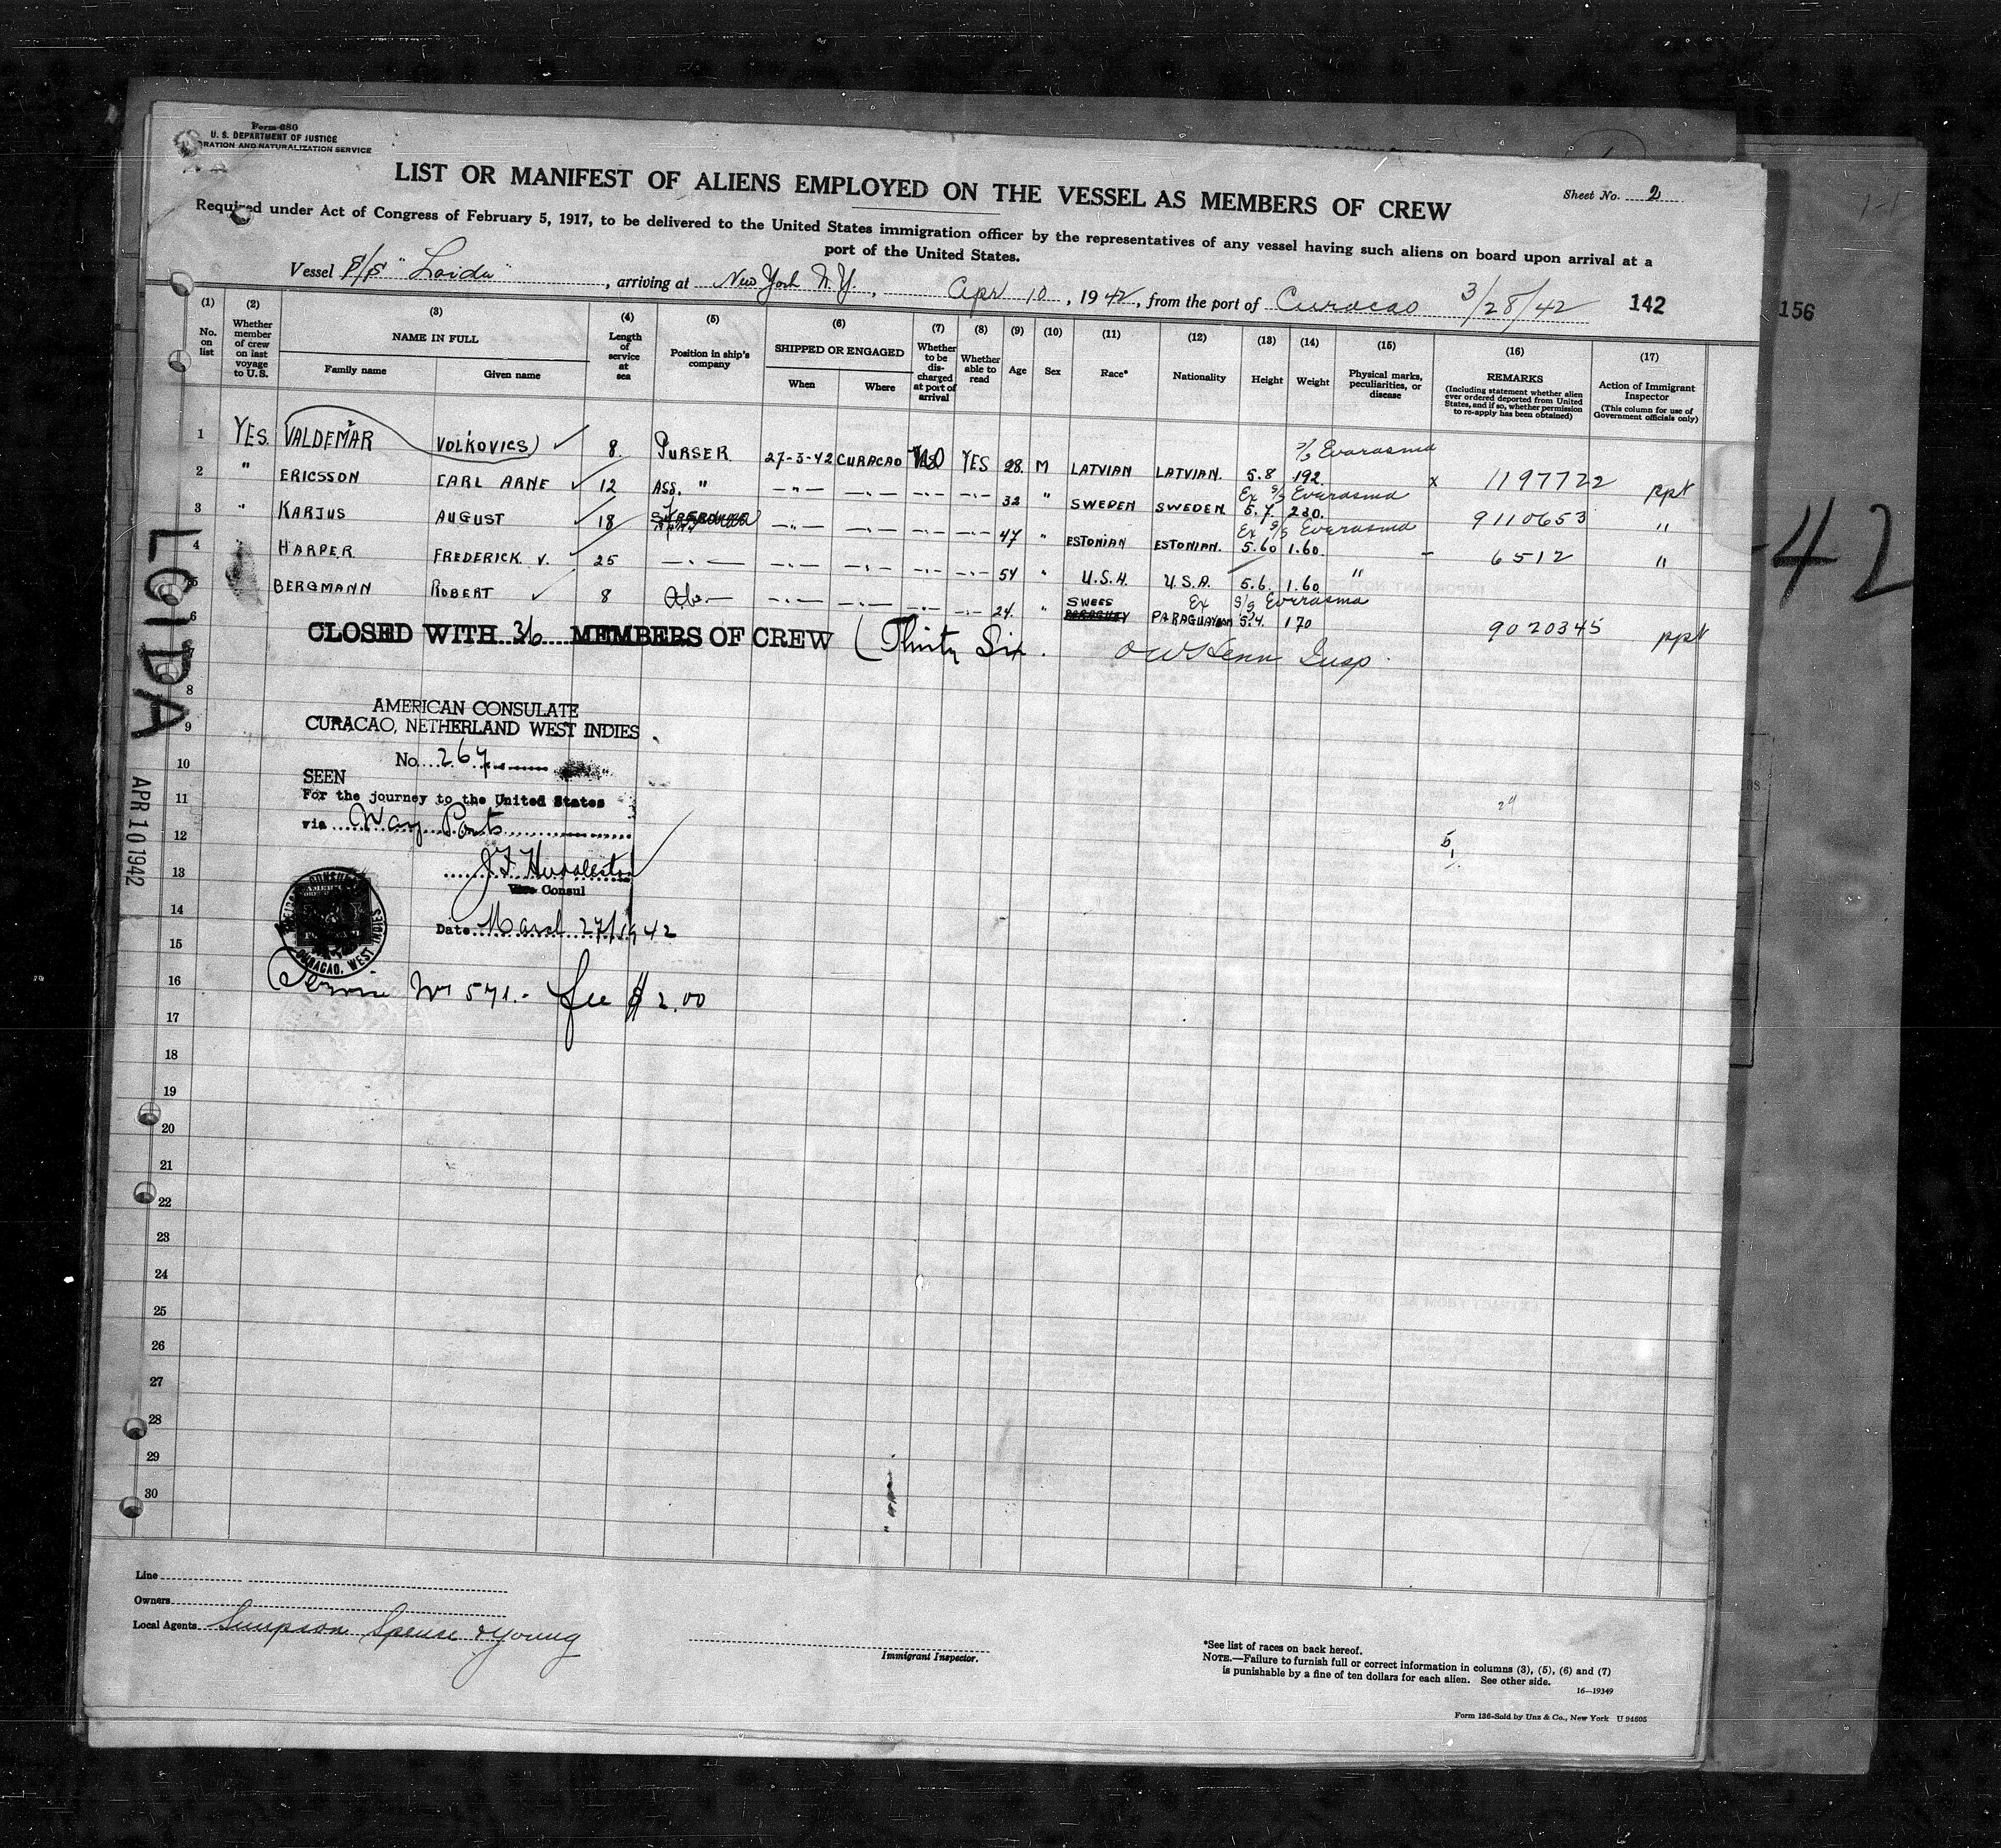 Form 680
U. S. DEPARTMENT OF JUSTICE
RATION AND NATURALIZATION SERVICE
LIST OR MANIFEST OF ALIENS EMPLOYED ON THE VESSEL AS MEMBERS OF CREW
Sheet No. 2
Required under Act of Congress of February 5, 1917, to be delivered to the United States immigration officer by the representatives of any vessel having such aliens on board upon arrival at a
port of the United States.
Vessel S/S "Loida", arriving at New York N.Y., Apr 10, 1942, from the port of Curacao 3/28/42 142
156
(1) No. on list
(2) Whether member of crew on last voyage to U.S.
(3) NAME IN FULL Family name Given name
(4) Length of service at sea
(5) Position in ship's company
(6) SHIPPED OR ENGAGED When Where
(7) Whether to be discharged at port of arrival
(8) Whether able to read
(9) Age
(10) Sex
(11) Race*
(12) Nationality
(13) Height
(14) Weight
(15) Physical marks, peculiarities, or disease
(16) REMARKS (Including statement whether alien ever ordered deported from United States, and if so, whether permission to re-apply has been obtained)
(17) Action of Immigrant Inspector (This column for use of Government officials only)
S/S Evarasma
1 YES. VALDEMAR VOLKOVICS 8. PURSER 27-3-42 CURACAO NO YES 28. M LATVIAN LATVIAN. 5.8 192. x 1197722 ppt
Ex S/S Evarasma
2 " ERICSSON CARL ARNE 12 ASS. " —"— —"— —"— —"— 32 " SWEDEN SWEDEN. 5.7. 220. 9110653 "
Ex S/S Evarasma
3 " KARJUS AUGUST 18 —"— —"— —"— —"— 47 " ESTONIAN ESTONIAN. 5.60 1.60. – 6512 "
4 HARPER FREDERICK V. 25 —"— —"— —"— —"— —"— 54 " U.S.A. U.S.A. 5.6. 1.60 "
Ex S/S Evarasma
5 BERGMANN ROBERT 8 —"— —"— —"— —"— 24. " SWEES PARAGUAYAN 5.4. 170 9020345 ppt
6 CLOSED WITH 36 MEMBERS OF CREW (Thirty Six. Insp.
7
8
AMERICAN CONSULATE
9 CURACAO, NETHERLAND WEST INDIES
No. 267
10
SEEN
11 For the journey to the United States
via Way Ports
12
13
Vice Consul
14
Date March 27/1942
15
AMERICAN CONSULATE CURACAO, WEST INDIES
16 Service No 571.- fee $2.00
17
18
19
20
21
22
23
24
25
26
27
28
29
30
LOIDA
APR 10 1942
-42
Line
Owners
Local Agents Simpson Spence & Young
Immigrant Inspector.
*See list of races on back hereof.
NOTE.—Failure to furnish full or correct information in columns (3), (5), (6) and (7)
is punishable by a fine of ten dollars for each alien. See other side.
16—19349
Form 136-Sold by Unz & Co., New York U 94605